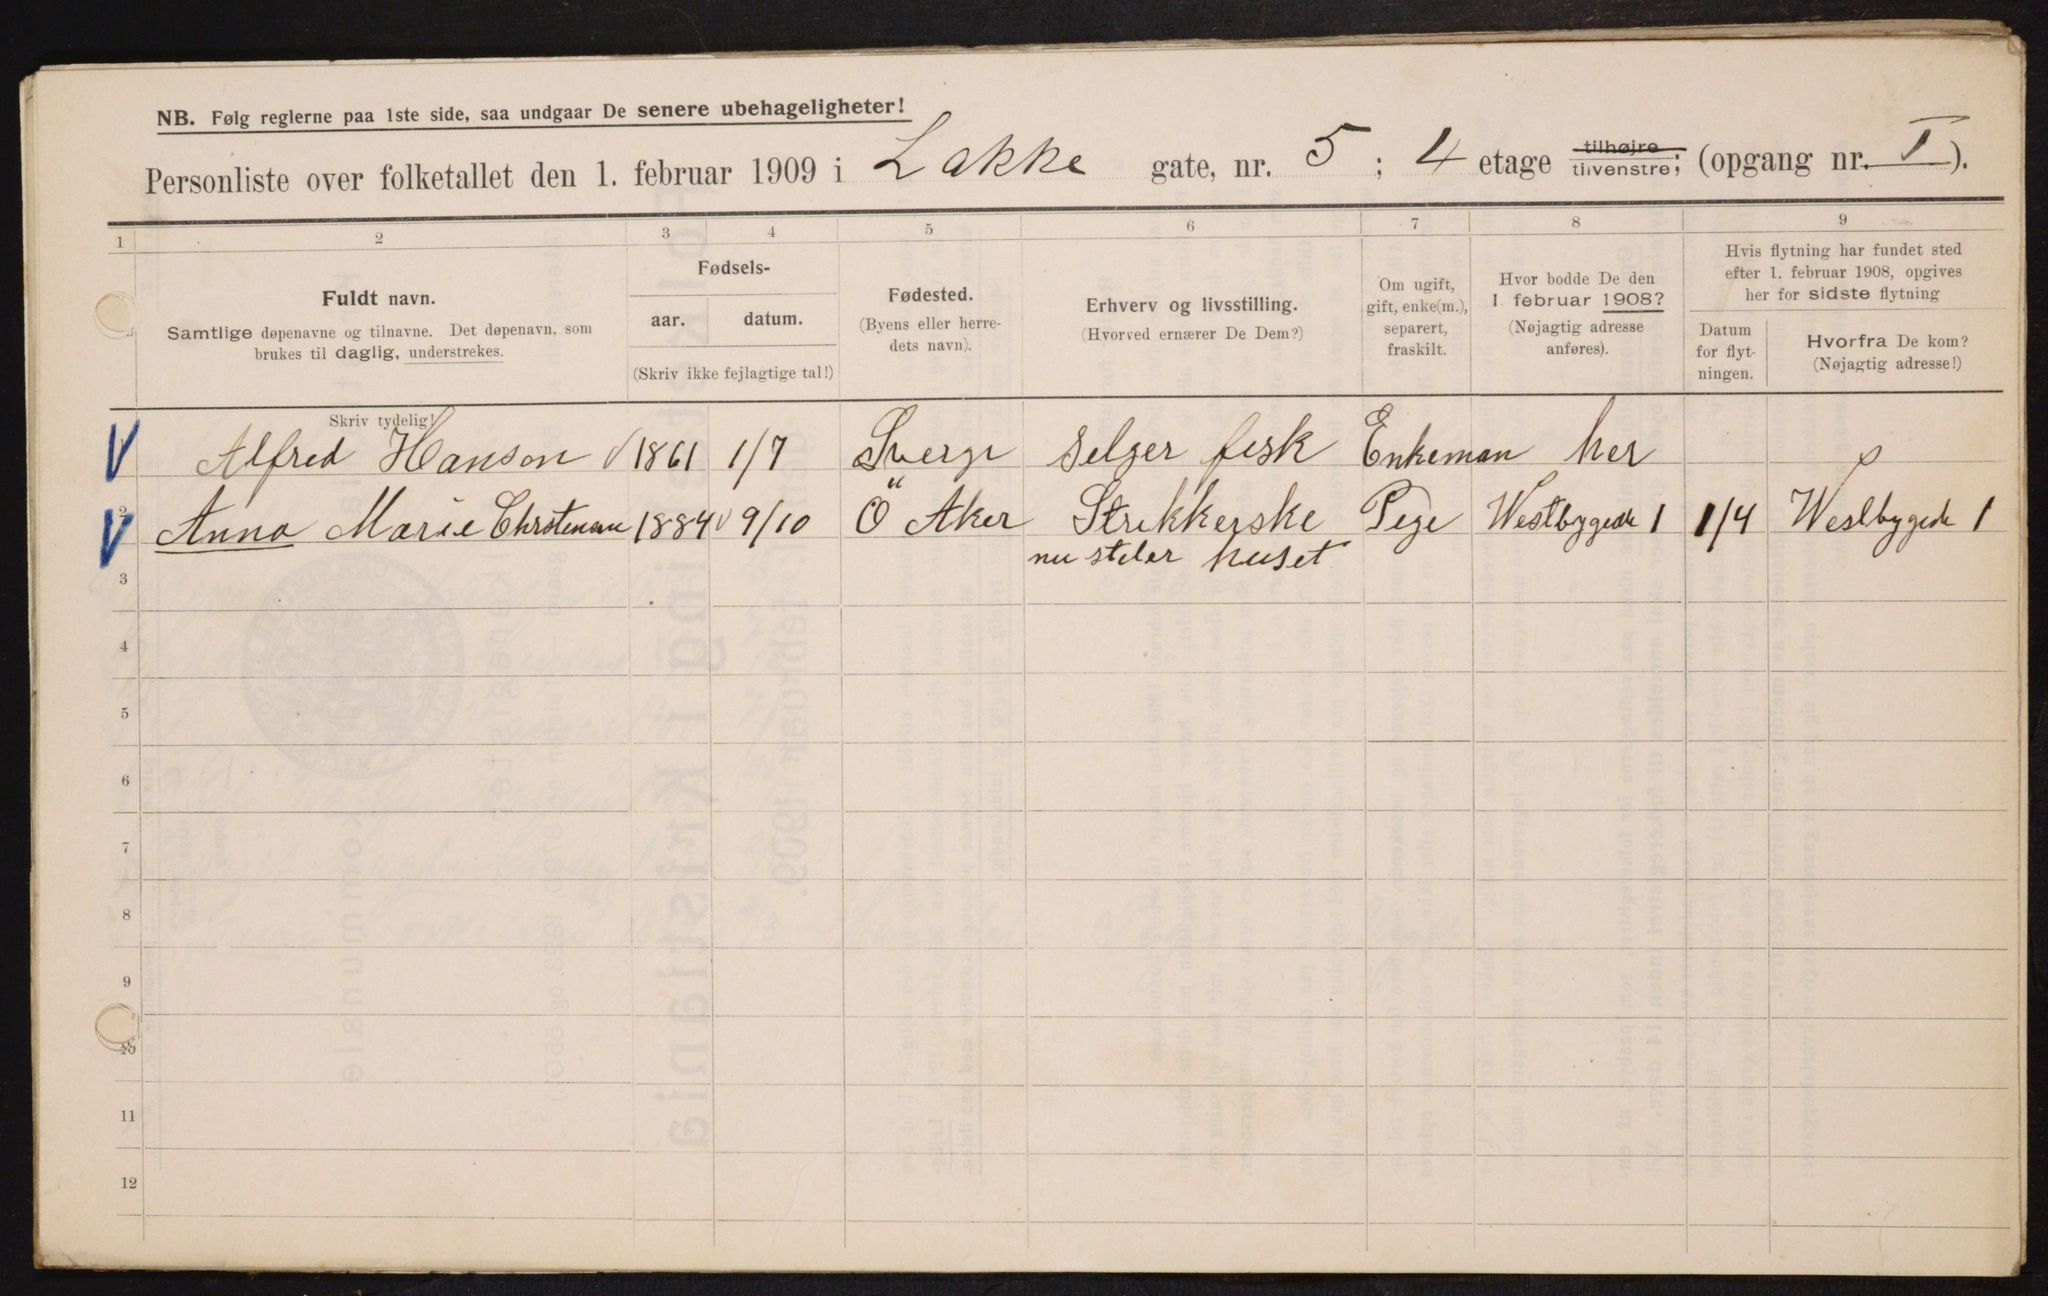 NB. Følg reglerne paa 1ste side, saa undgaar De senere ubehageligheter!
Personliste over folketallet den 1. februar 1909 i Lakke gate, nr. 5 ; 4 etage tilhøjre tilvenstre; (opgang nr. I ).
1 2 3 4 5 6 7 8 9
Fuldt navn.
Samtlige døpenavne og tilnavne. Det døpenavn, som
brukes til daglig, understrekes.
Skriv tydelig!
Fødsels-
aar. datum.
(Skriv ikke fejlagtige tal!)
Fødested.
(Byens eller herre-
dets navn).
Erhverv og livsstilling.
(Hvorved ernærer De Dem?)
Om ugift,
gift, enke(m.),
separert,
fraskilt.
Hvor bodde De den
1. februar 1908?
(Nøjagtig adresse
anføres).
Hvis flytning har fundet sted
efter 1. februar 1908, opgives
her for sidste flytning
Datum
for flyt-
ningen.
Hvorfra De kom?
(Nøjagtig adresse!)
Alfred Hanson 1861 1/7 Sverge selger fisk Enkeman her
2 Anna Marie Chrstensen 1884 9/10 Ö Aker Strikkerske Pige Westbygede 1 1/4 Westbygede 1
nu steler huset
3
4
5
6
7
8
9
10
11
12